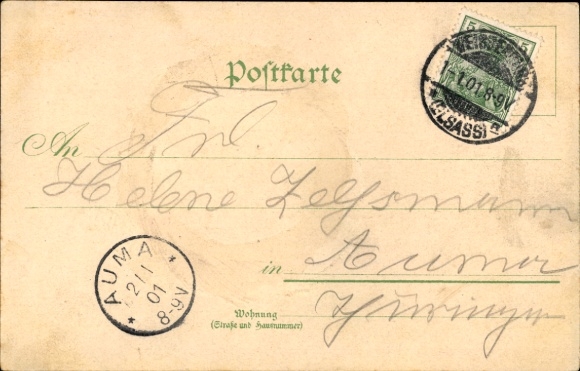 5 5
1.01.8-9V
(ELSASS)
Postkarte
Frl
An
Helene
in Auma
Thüringen
AUMA
2/1
01
8-9V
Wohnung
(Straße und Hausnummer)